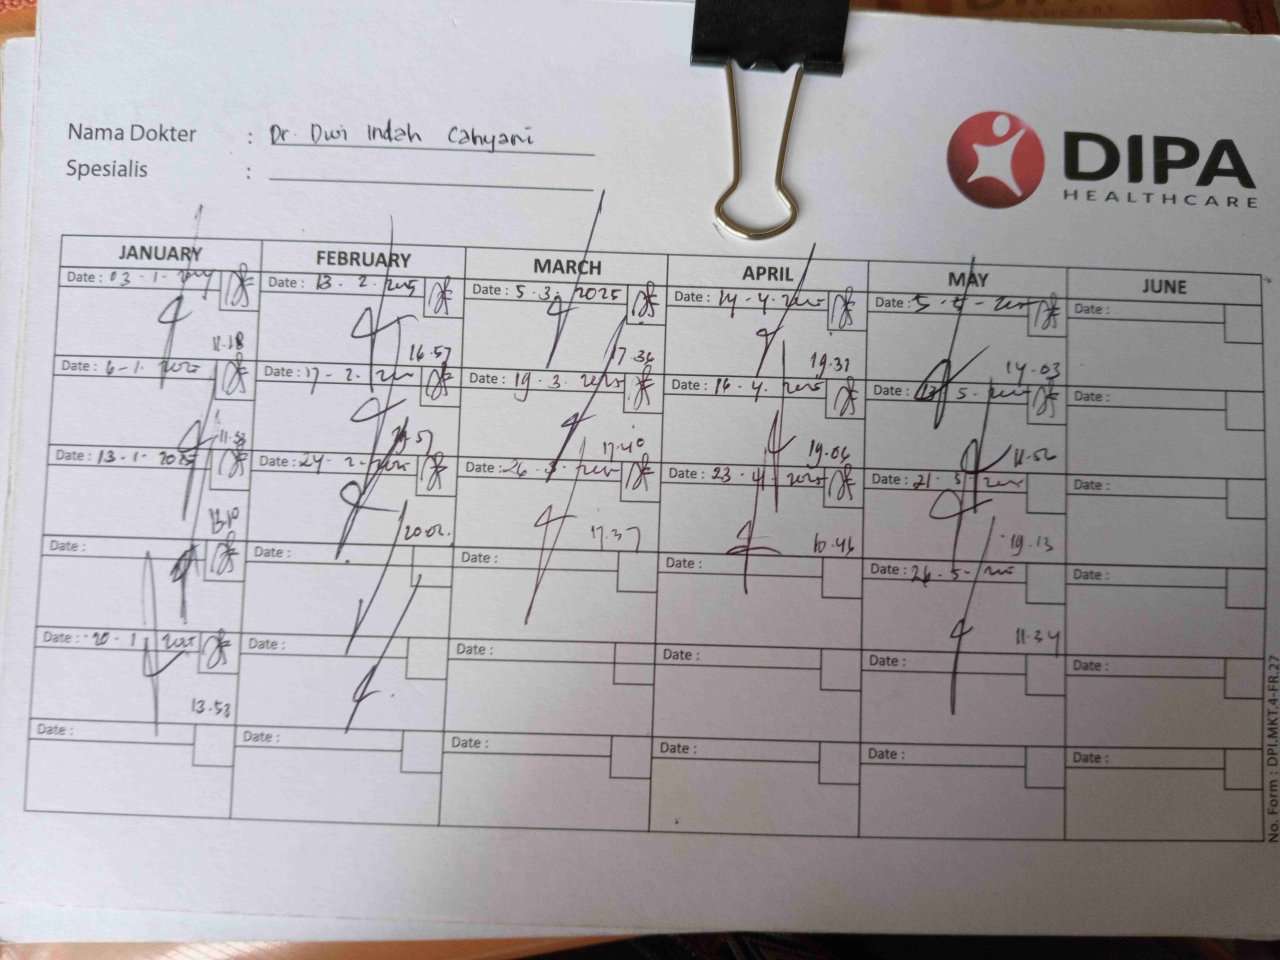 Nama Dokter : Dr. Dwi Indah Cahyani
Spesialis :
DIPA
HEALTHCARE
JANUARY FEBRUARY MARCH APRIL MAY JUNE
Date : 03 - 1 - Date : 13 - 2 - 2025 Date : 5 - 3 - 2025 Date : 14 - 4 - 2025 Date : 5 - 5 - 2025 Date :
11.18 16.57 17.36 19.31 14.03
Date : 6 - 1 - 2025 Date : 17 - 2 - 2025 Date : 19 - 3 - 2025 Date : 16 - 4 - 2025 Date : 5 - 2025 Date :
11.58 57 17.40 19.06 11.56
Date : 13 - 1 - 2025 Date : 24 - 2 - 2025 Date : 26 - 3 - 2025 Date : 23 - 4 - 2025 Date : 21 - 5 - 2025 Date :
13.10 20.02. 17.37 10.46 19.13
Date : Date : Date : Date : Date : 26 - 5 - 2025 Date :
11.34
Date : 20 - 1 - 2025 Date : Date : Date : Date : Date :
13.53
Date : Date : Date : Date : Date : Date :
No. Form : DPI.MKT.4-FR.27